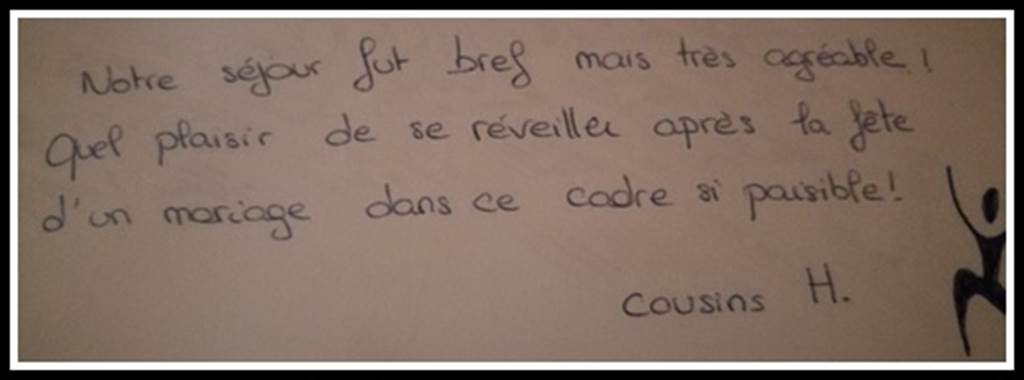 Notre séjour fut bref mais très agréable !
Quel plaisir de se réveiller après la fête
d'un mariage dans ce cadre si paisible !
Cousins H.